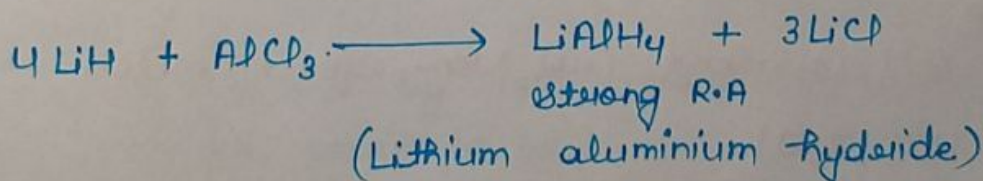 4 LiH + AlCl₃ ⟶ LiAlH₄ + 3LiCl
strong R.A
(Lithium aluminium hydride)